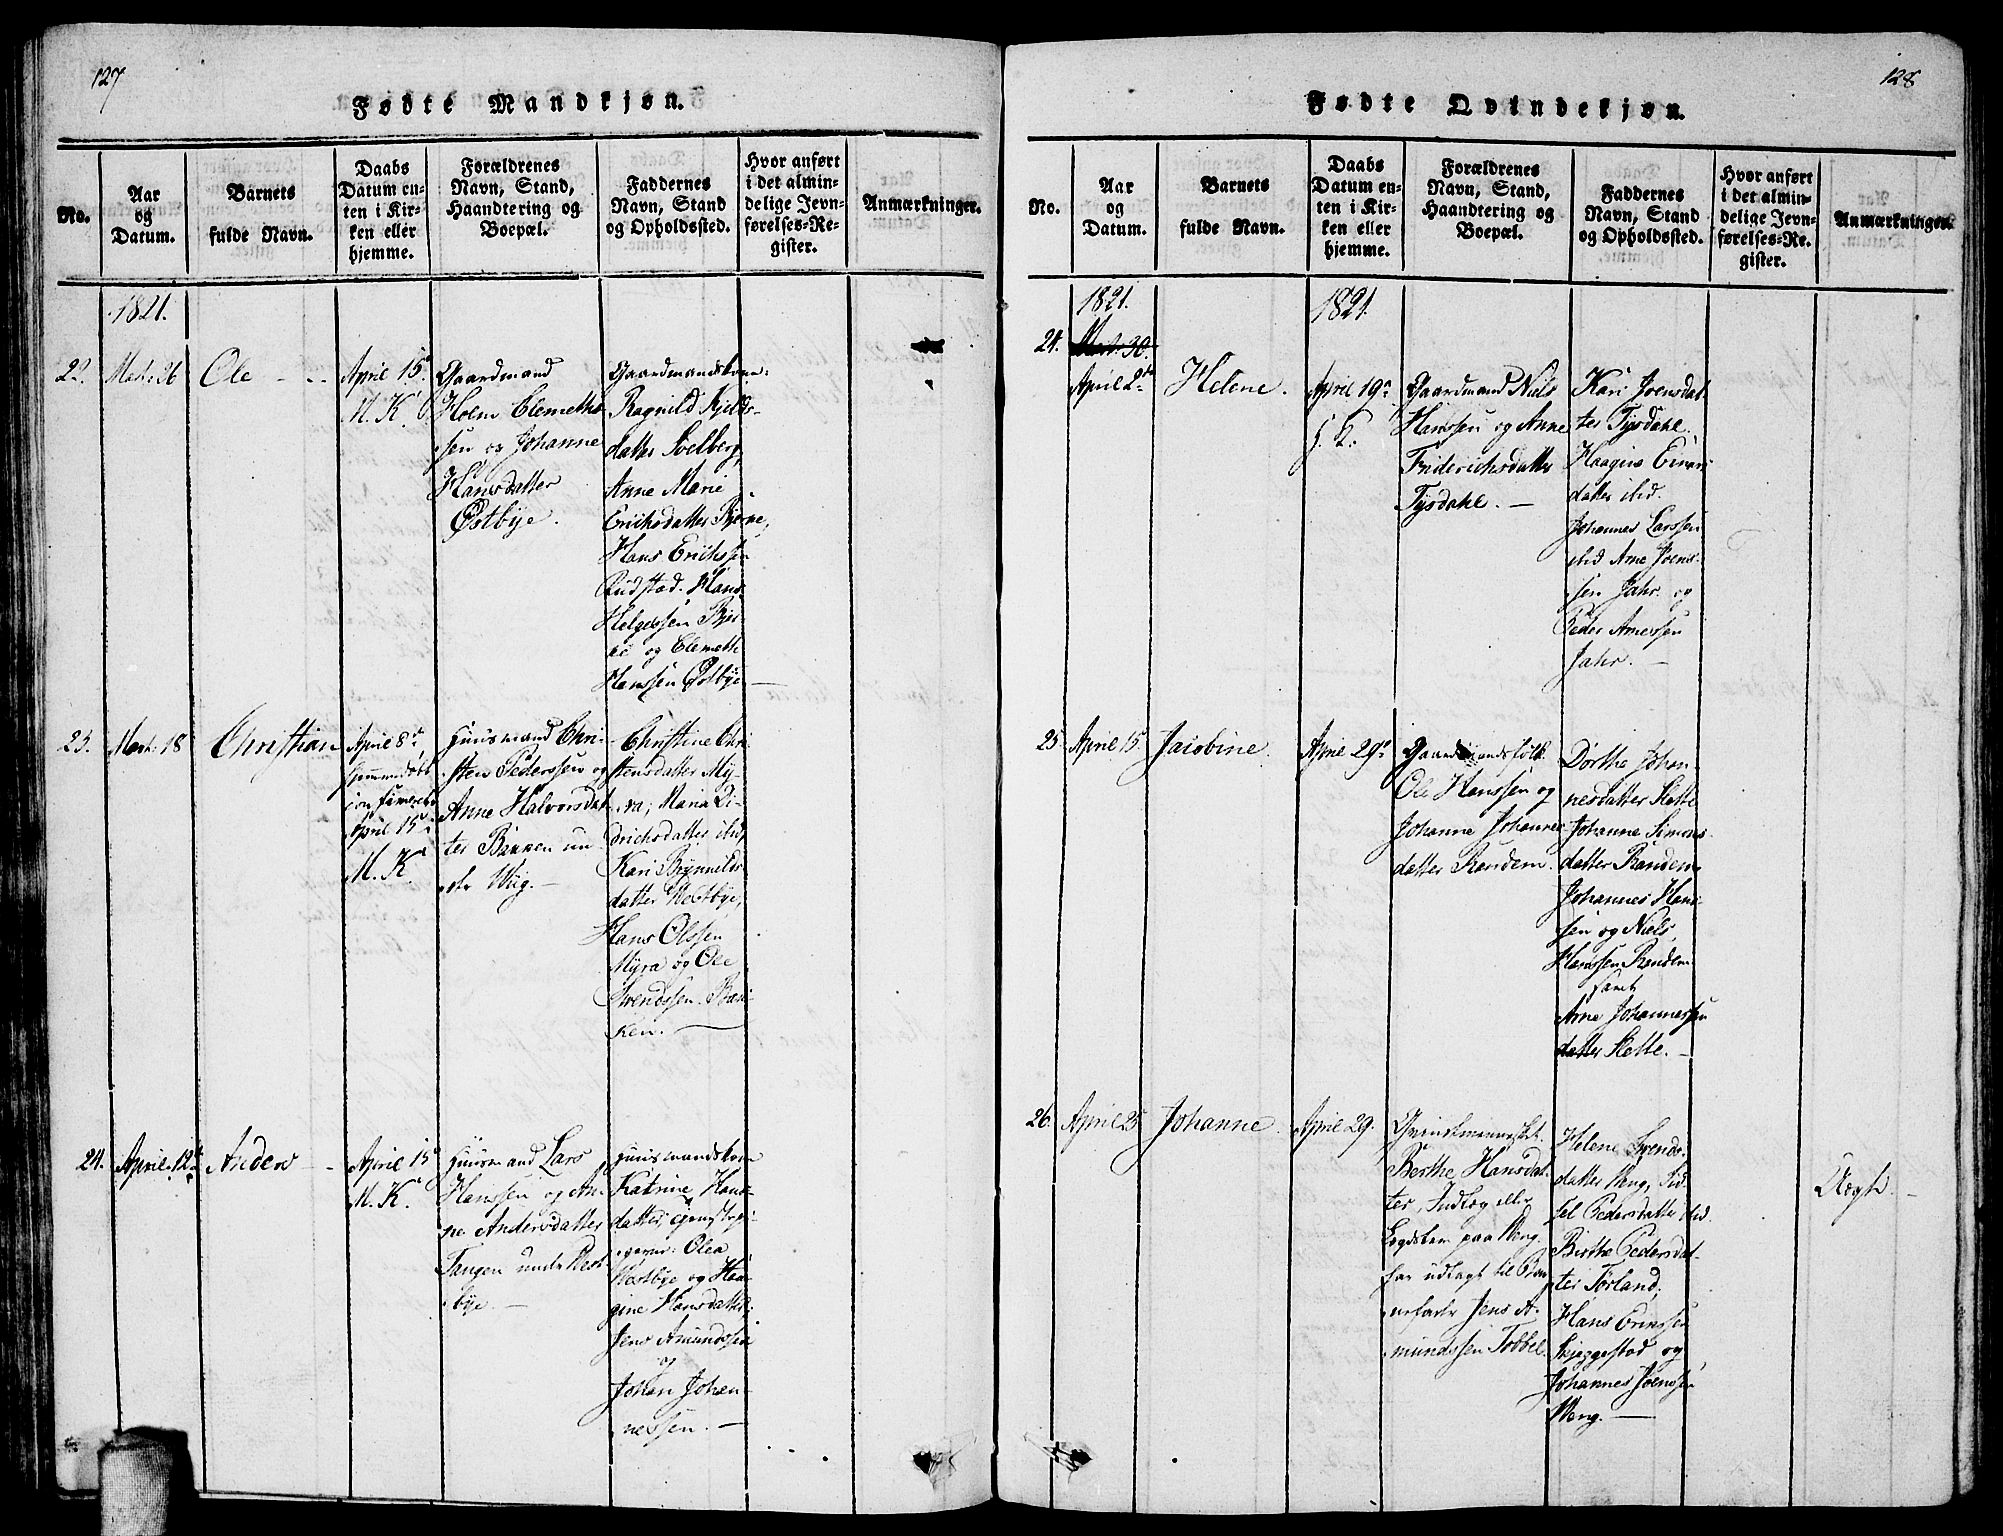 127
Fødte Mandkjøn.
No.
Aar
og
Datum.
Barnets
fulde Navn.
Daabs
Datum en-
ten i Kir-
ken eller
hjemme.
Forældrenes
Navn, Stand,
Haandtering og
Boepæl.
Faddernes
Navn, Stand
og Opholdssted.
Hvor anført
i det almin-
delige Jevn-
førelses-Re-
gister.
Anmærkninger.
1821.
Mart: 26
Ole
April 15
M. K.
Gaardmand
Hoem Clemeths
sen og Johanne
Hansdatter
Østbye.
Gaardmandskone:
Ragnild Kjelds-
datter Soelberg,
Anne Marie
Erichsdatter Bjerke,
Hans Erichssen
Rudstad. Hans
Helgessen Bjer-
ke og Clemeth
Hanssen Østbye
23.
Mart: 18
Christian
April 8de
hjemmedøbt
April 15
M. K.
Huusmand Chri-
sten Pederssen og
Anne Halvorsdat
ter Bakken un-
der Wiig.
Christine Chri
stensdatter My-
ra, Maria Di-
drichsdatter ibid,
Kari Brynnilds-
datter Westbye,
Hans Olssen
Myra og Ole
Svendssen Bak-
ken.
24.
April 12te
Anders
April 15
M. K.
Huusmand Lars
Hanssen og An-
ne Andersdatter
Tangen under West-
bye.
Huusmandskone
Katrine Hans-
datter,
Olea
Westbye og Haa-
gine Hansdatter,
Jens Amundssen
og
Johan Johan-
nessen.
128
Fødte Qvindekjøn.
No.
Aar
og
Datum.
Barnets
fulde Navn.
Daabs
Datum en-
ten i Kir-
ken eller
hjemme.
Forældrenes
Navn, Stand,
Haandtering og
Boepæl.
Faddernes
Navn, Stand
og Opholdssted.
Hvor anført
i det almin-
delige Jevn-
førelses-Re-
gister.
Anmærkninger.
1821.
1821.
24.
Mart: 30.
April 2de
Helene.
April 19
Gaardmand Niels
Hanssen og Anne
Friderichsdatter
Tysdahl.
Kari Joensdat
ter Tysdahl.
Haagine Einers
datter ibid.
Johannes Larssen
ibid Arne Joens-
sen Jahr og
Peder Arnessen
Jahr.
25.
April 15.
Jacobine.
April 29
Gaardmandsfolk
Ole Hanssen og
Johanne Johannes
datter Randem.
Dorthe Johan-
nesdatter Slette
Johanne Simons-
datter Randem
Johannes Hans-
sen og Niels
Hanssen Randem
samt
Arne Johannessen
datter Slette.
26.
April 25
Johanne.
April 29.
Qvindemennesket
Berthe Hansdat-
ter, Indlog eller
Legdslem paa Weng
har udlagt til Bar-
nefader Jens A-
mundssen Tobbel.
Helene Svends-
datter Weng, Sid-
sel Pedersdatter ibid.
Birthe Pedersdat-
ter Torland,
Hans Erikssen
Skjeggestad og
Johannes Joenssen
Weng.
Uægte.